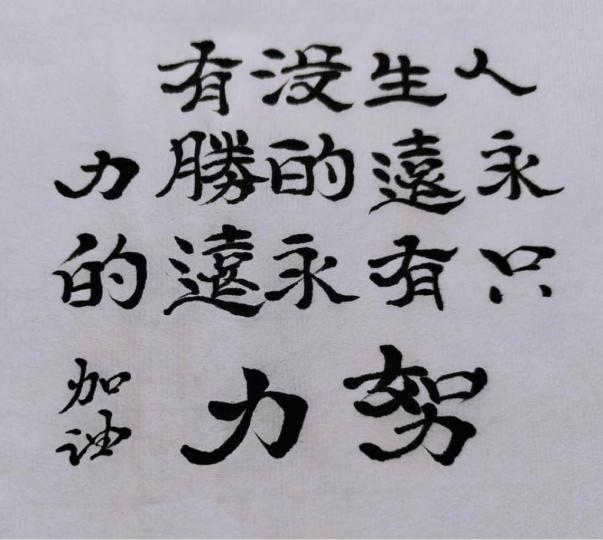 人生没有
永遠的勝力
只有永遠的
努力
加油